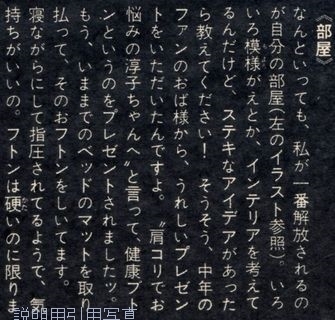 《部屋》
なんといっても、私が一番解放されるの
が自分の部屋(左のイラスト参照)。いろ
いろ模様がえとか、インテリアを考えて
るんだけど、ステキなアイデアがあった
ら教えてください! そうそう、中年の
ファンのおば様から、うれしいプレゼン
トをいただいたんですよ。〝肩コリでお
悩みの淳子ちゃんへ〟と言って、健康フト
ンというのをプレゼントされましたッ。
もう、いままでのベッドのマットを取り
払って、そのおフトンをしいてます。
寝ながらにして指圧されてるようで、気
持ちがいいの。フトンは硬いのに限りま
説明用引用写真